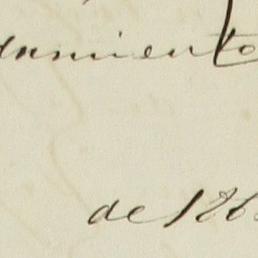 damiento
de 186